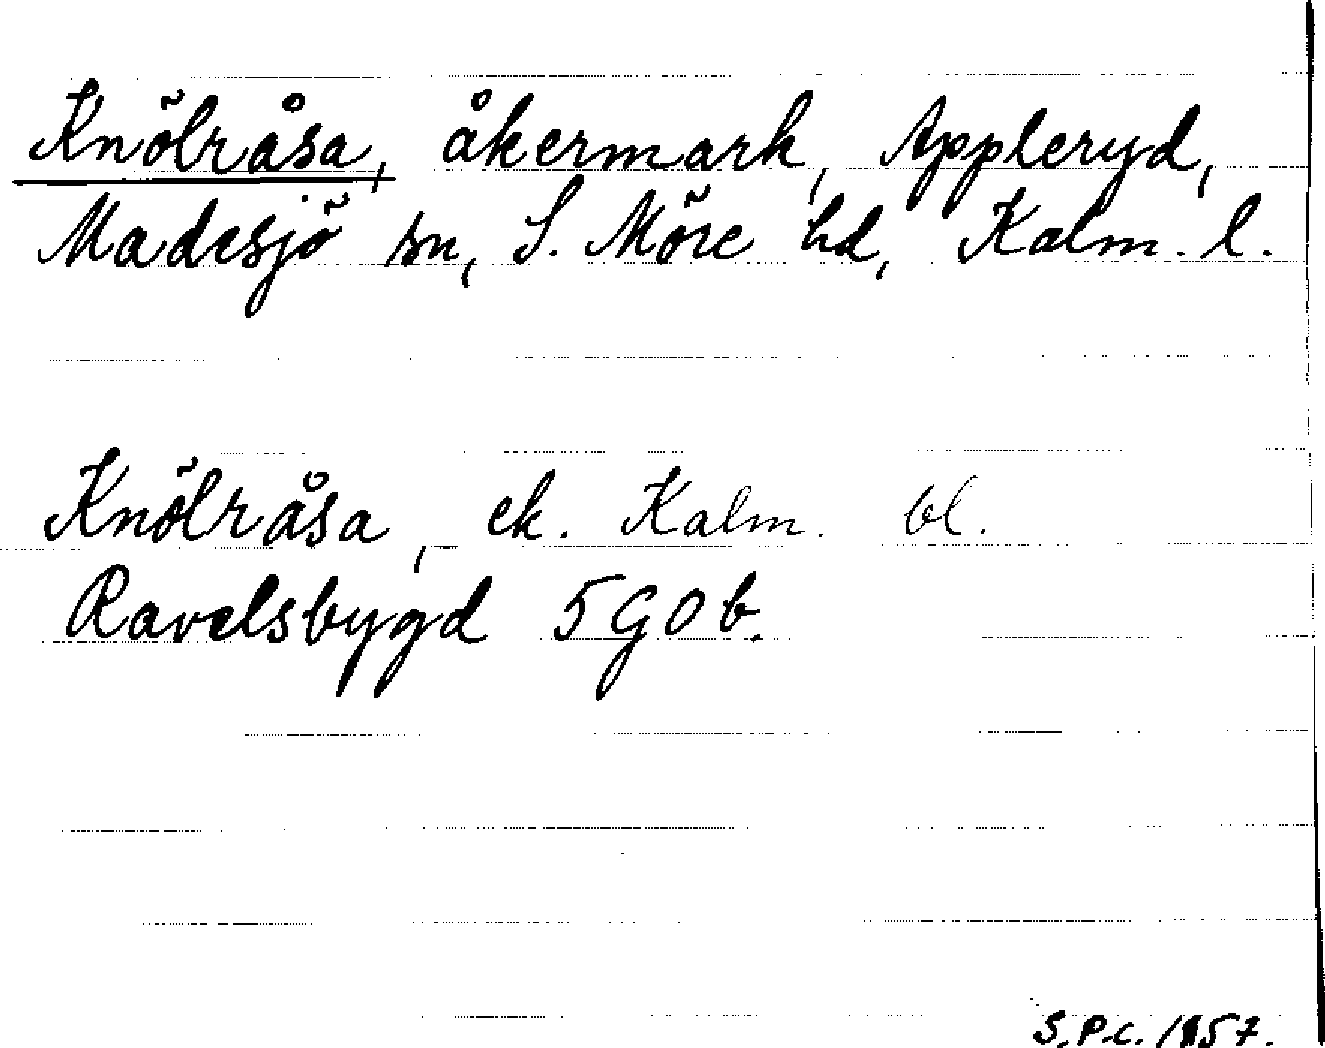 Knölråsa, åkermark, Appleryd,
Madesjö sn, S. Möre hd, Kalm. l.
Knölråsa, ek. Kalm. bl.
Ravelsbygd 5 G O b.
S.P.C. 1957.